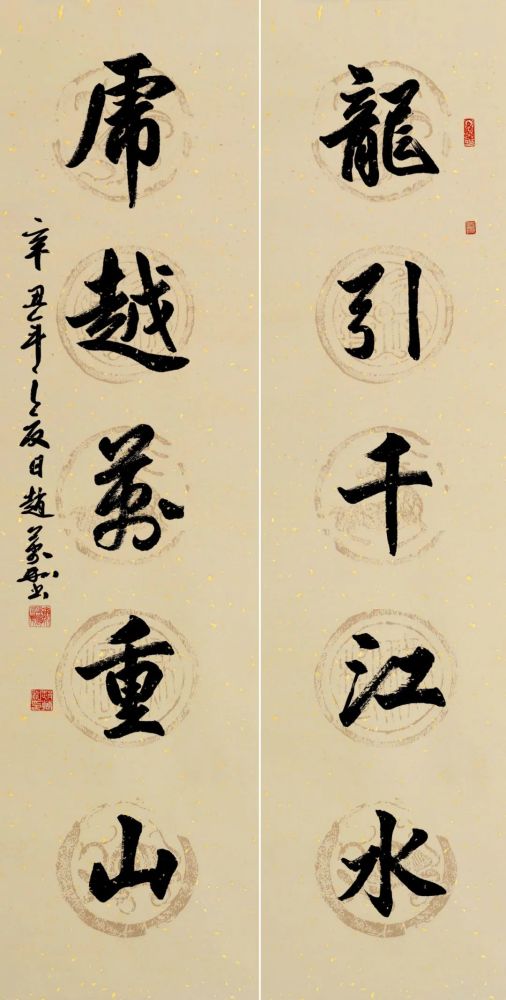 龍引千江水
虎越萬重山
辛丑年之夏日趙